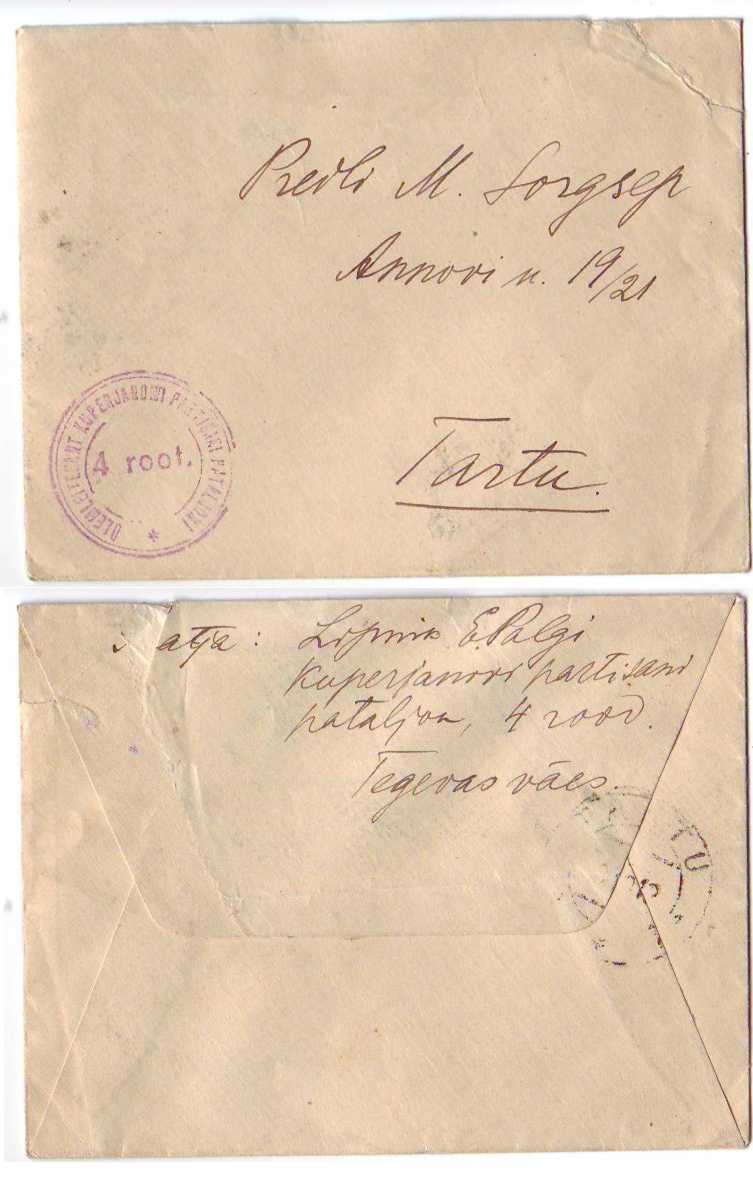 Predli M. Sorgsep
Annovi u. 19/21
ALEMLEITENANT KUPERJANOWI PARTISANI PATALJONI
4 root.
Tartu.
atja: Lipnik E. Palgi
Kuperjanovi partisani
pataljon, 4 rood.
Tegevas väes.
TARTU